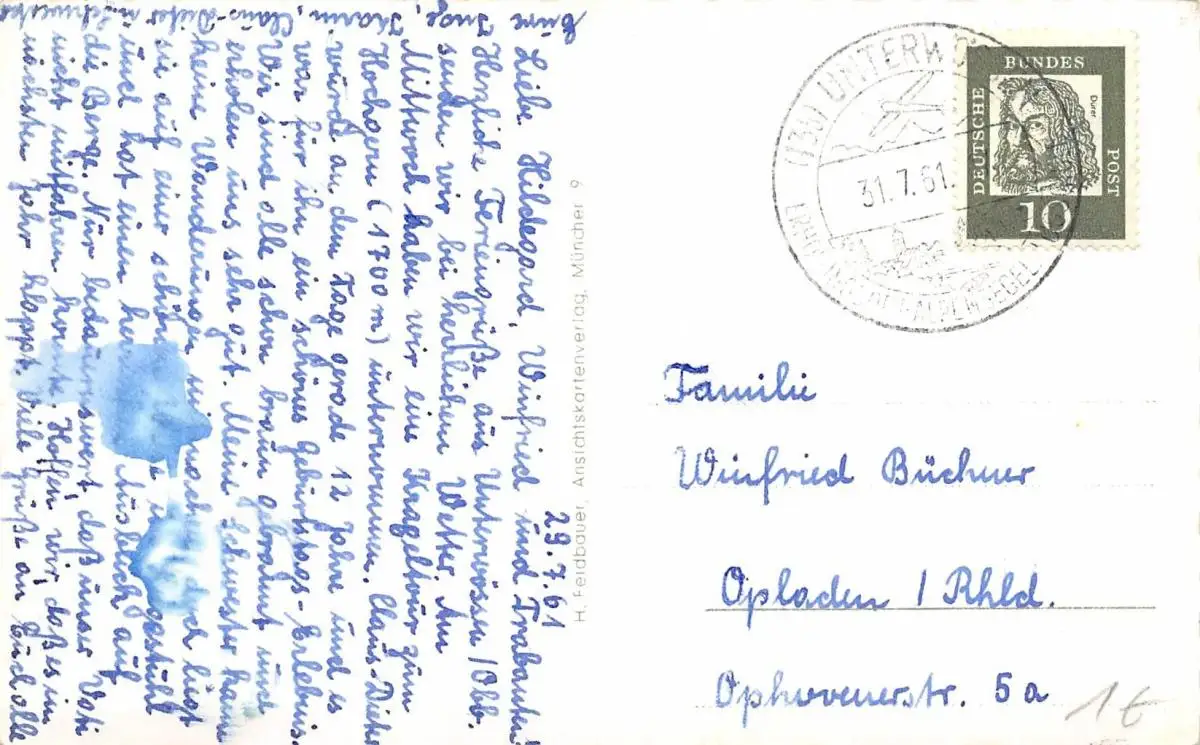 29.7.61
Liebe Hildegard, Winfried und Trabanten!
Herzliche Feriengrüße aus Unterwössen/Obb.
senden wir bei herrlichem Wetter. Am
Mittwoch haben wir eine Tour zum
Hochgern (1700 m) unternommen. Claus-Dieter
wurde an dem Tage gerade 12 Jahre und es
war für ihn ein schönes Geburtstags-Erlebnis.
Wir sind alle schon braun gebrannt und
erholen uns sehr gut. Meine Schwester kann
keine Wanderungen liegt
sie auf einer schönen
und hat einen Ausblick auf
die Berge. Nur bedauernswert, daß unser Vati
nicht mitfahren konnte. Hoffen wir, daß es im
nächsten Jahr klappt. Viele Grüße an Euch alle
Eure Inge, Karin, Claus-Dieter
H. Feldbauer, Ansichtskartenverlag, München 9
(13b) UNTERWÖ
31.7.61.
DEUTSCHE
BUNDES
POST
Dürer
10
Familie
Winfried Büchner
Opladen / Rhld.
Ophovenerstr. 5a
1€